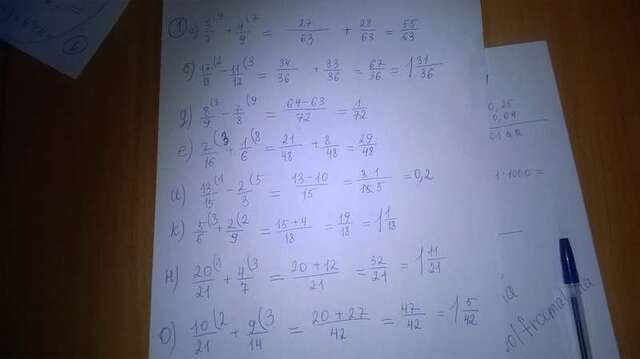 1 а) 3/7 (9 + 4/9 (7 = 27/63 + 28/63 = 55/63
б) 17/18 (2 - 11/12 (3 = 34/36 + 33/36 = 67/36 = 1 31/36
д) 8/9 (8 - 7/8 (9 = 64-63/72 = 1/72
е) 7/16 (3 + 1/6 (8 = 21/48 + 8/48 = 29/48
и) 13/15 (1 - 2/3 (5 = 13-10/15 = 3 1/15 5 = 0,2
к) 5/6 (3 + 2/9 (2 = 15+4/18 = 19/18 = 1 1/18
н) 20/21 (1 + 4/7 (3 = 20+12/21 = 32/21 = 1 11/21
о) 10/21 (2 + 9/14 (3 = 20+27/42 = 47/42 = 1 5/42
2
0,25
0,04
1·1000=